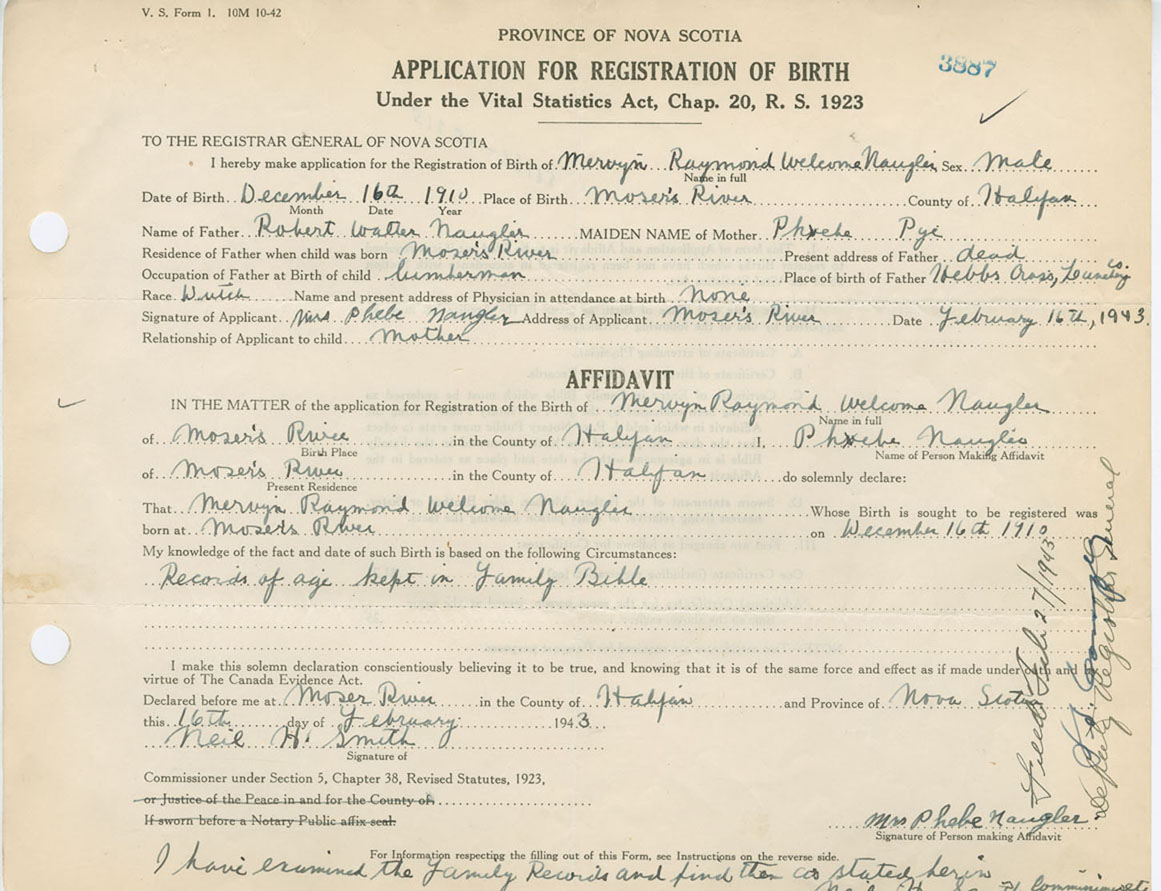 V. S. Form 1. 10M 10-42
PROVINCE OF NOVA SCOTIA
3887
APPLICATION FOR REGISTRATION OF BIRTH
Under the Vital Statistics Act, Chap. 20, R. S. 1923
TO THE REGISTRAR GENERAL OF NOVA SCOTIA
I hereby make application for the Registration of Birth of Mervyn Raymond Welcome Naugler Sex Male
Name in full
Date of Birth December 16th 1910 Place of Birth Moser's River County of Halifax
Month Date Year
Name of Father Robert Walter Naugler MAIDEN NAME of Mother Phoebe Pye
Residence of Father when child was born Moser's River Present address of Father dead
Occupation of Father at Birth of child lumberman Place of birth of Father Hebbs Cross, Lunenburg Co.
Race Dutch Name and present address of Physician in attendance at birth None
Signature of Applicant Mrs Phebe Naugler Address of Applicant Moser's River Date February 16th, 1943.
Relationship of Applicant to child Mother
AFFIDAVIT
IN THE MATTER of the application for Registration of the Birth of Mervyn Raymond Welcome Naugler
Name in full
of Moser's River in the County of Halifax I, Phoebe Naugler
Birth Place Name of Person Making Affidavit
of Moser's River in the County of Halifax do solemnly declare:
Present Residence
That Mervyn Raymond Welcome Naugler Whose Birth is sought to be registered was
born at Moser's River on December 16th 1910
My knowledge of the fact and date of such Birth is based on the following Circumstances:
Records of age kept in Family Bible
I make this solemn declaration conscientiously believing it to be true, and knowing that it is of the same force and effect as if made under oath and by
virtue of The Canada Evidence Act.
Declared before me at Moser River in the County of Halifax and Province of Nova Scotia
this 16th day of February 1943
Neil H. Smith
Signature of
Commissioner under Section 5, Chapter 38, Revised Statutes, 1923,
or Justice of the Peace in and for the County of
If sworn before a Notary Public affix seal.
Mrs Phebe Naugler
Signature of Person making Affidavit
For Information respecting the filling out of this Form, see Instructions on the reverse side.
I have examined the Family Records and find them as stated herin
Neil H.
Filed Feb 27/1943
Deputy Registrar General